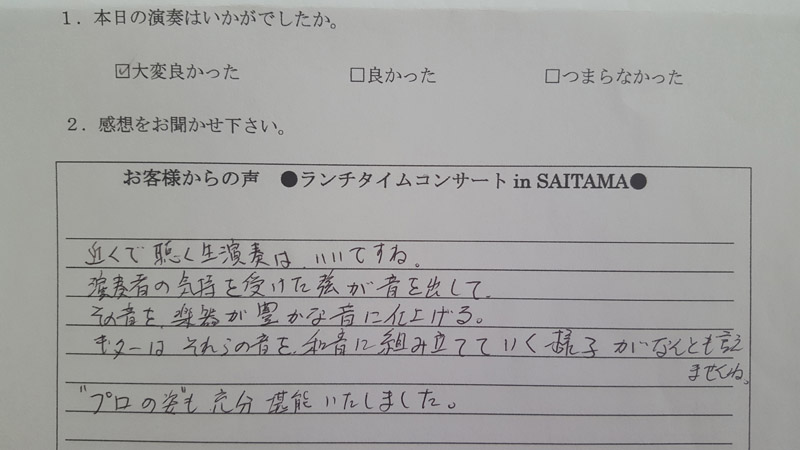 1．本日の演奏はいかがでしたか。
☑大変良かった □良かった □つまらなかった
2．感想をお聞かせ下さい。
お客様からの声 ●ランチタイムコンサート in SAITAMA●
近くで聴く生演奏は、いいですね。
演奏者の気持を受けた弦が音を出して、
その音を、楽器が豊かな音に仕上げる。
ギターは それらの音を、和音に組み立てていく様子がなんとも言え
ませんね。
"プロの姿"も充分堪能いたしました。